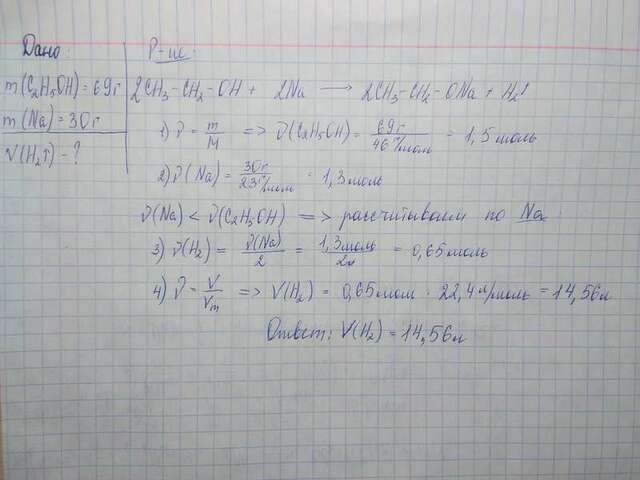 Дано:
m(C₂H₅OH) = 69г
m(Na) = 30г
V(H₂↑) - ?
Р-ие:
2CH₃-CH₂-OH + 2Na ⟶ 2CH₃-CH₂-ONa + H₂↑
1) ν = m/M => ν(C₂H₅OH) = 69г/46г/моль = 1,5моль
2) ν(Na) = 30г/23г/моль = 1,3моль
ν(Na) < ν(C₂H₅OH) => рассчитываем по Na
3) ν(H₂) = ν(Na)/2 = 1,3моль/2 = 0,65моль
4) ν = V/Vm => V(H₂) = 0,65моль · 22,4л/моль = 14,56л
Ответ: V(H₂) = 14,56л